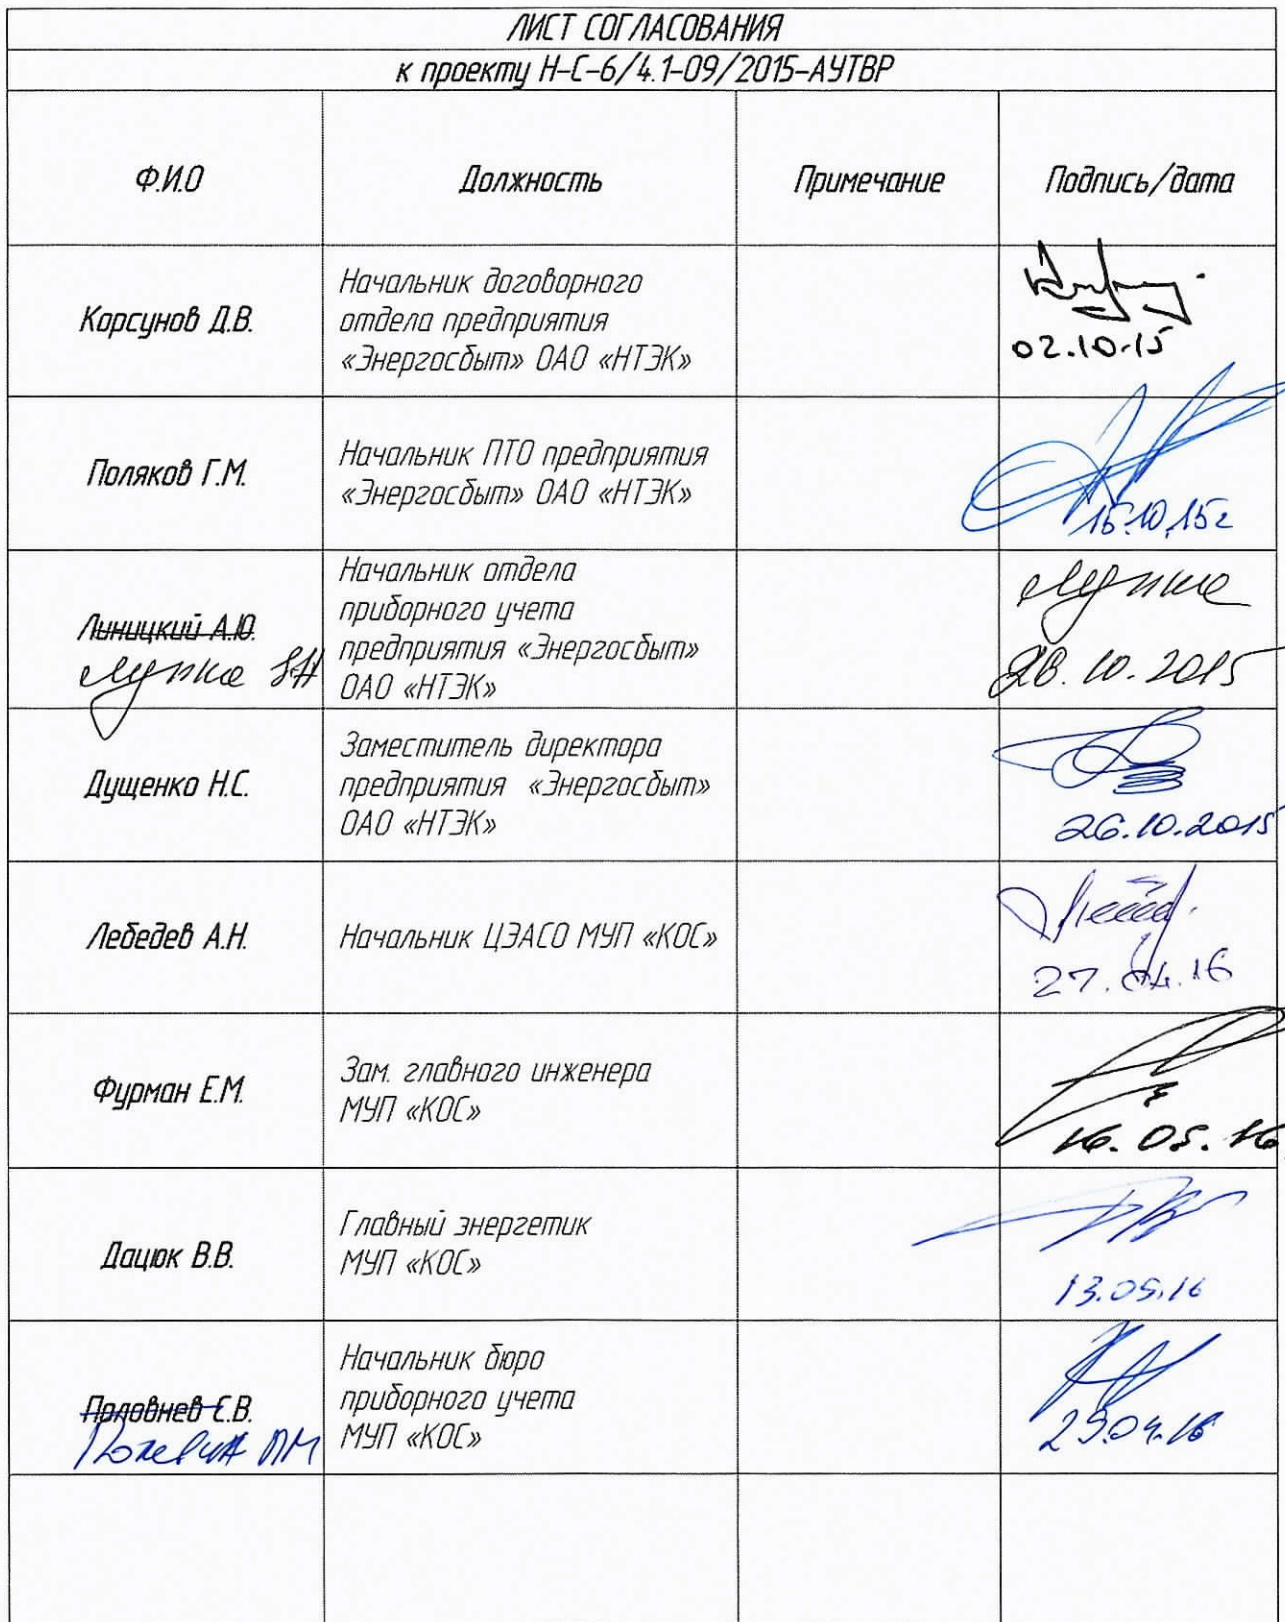 ЛИСТ СОГЛАСОВАНИЯ
к проекту Н-С-6/4.1-09/2015-АУТВР
Ф.И.О Должность Примечание Подпись/дата
Корсунов Д.В.
Начальник договорного
отдела предприятия
«Энергосбыт» ОАО «НТЭК»
02.10.15
Поляков Г.М.
Начальник ПТО предприятия
«Энергосбыт» ОАО «НТЭК»
15.10.15г
Линицкий А.Ю.
Начальник отдела
приборного учета
предприятия «Энергосбыт»
ОАО «НТЭК»
10.2015
Дущенко Н.С.
Заместитель директора
предприятия «Энергосбыт»
ОАО «НТЭК»
26.10.2015
Лебедев А.Н.
Начальник ЦЭАСО МУП «КОС»
27.04.16
Фурман Е.М.
Зам. главного инженера
МУП «КОС»
16.05.16
Дацюк В.В.
Главный энергетик
МУП «КОС»
13.05.16
Половнев С.В.
Начальник бюро
приборного учета
МУП «КОС»
29.04.16